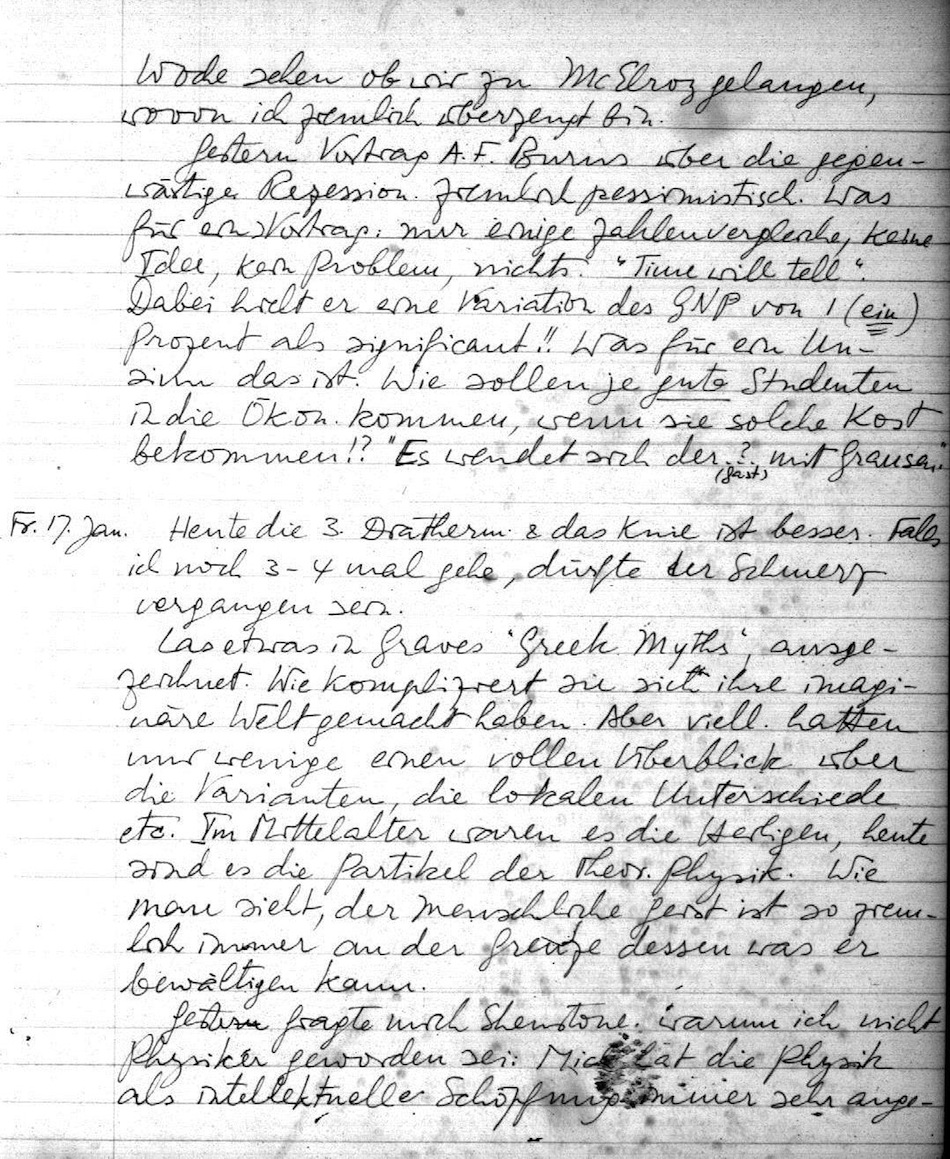 Woche sehen ob wir zu McElroy gelangen,
wovon ich ziemlich überzeugt bin.
Gestern Vortrag A.F. Burns über die gegen-
wärtige Rezession. Ziemlich pessimistisch. Was
für ein Vortrag: nur einige Zahlenvergleiche, keine
Idee, kein Problem, nichts. "Time will tell".
Dabei hielt er eine Variation des GNP von 1 (ein)
Prozent als significant!! Was für ein Un-
sinn das ist. Wie sollen je gute Studenten
in die Ökon. kommen, wenn sie solche Kost
bekommen!? "Es wendet sich der..?.. mit Grausen"
(Gast)
Fr. 17. Jan. Heute die 3. Diatherm. & das Knie ist besser. Falls
ich noch 3-4 mal gehe, dürfte der Schmerz
vergangen sein.
Las etwas in Graves 'Greek Myths', ausge-
zeichnet. Wie kompliziert sie sich ihre imagi-
näre Welt gemacht haben. Aber viell. hatten
nur wenige einen vollen Überblick über
die Varianten, die lokalen Unterschiede
etc. Im Mittelalter waren es die Heiligen, heute
sind es die Partikel der theor. Physik. Wie
man sieht, der menschliche Geist ist so ziem-
lich immer an der Grenze dessen was er
bewältigen kann.
Gestern fragte mich Shenstone. warum ich nicht
Physiker geworden sei: Mich hat die Physik
als intellektuelle Schöpfung immer sehr ange-